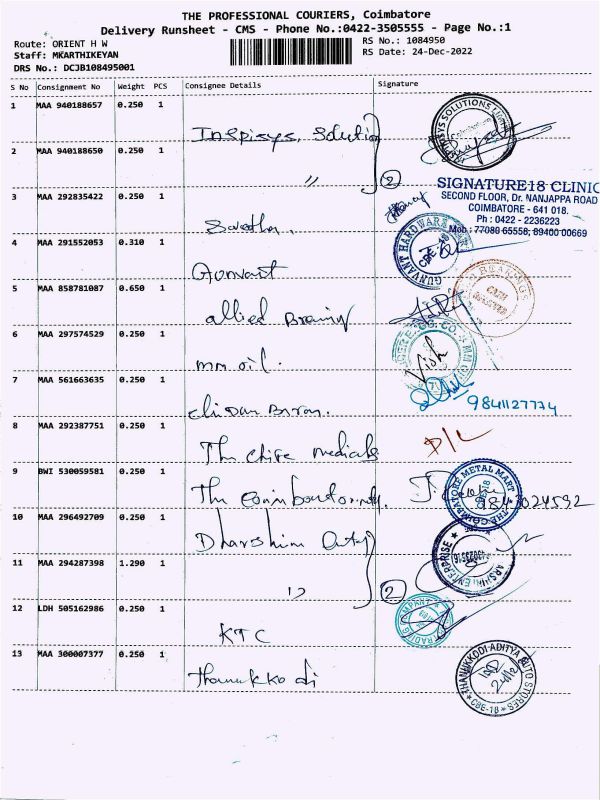 THE PROFESSIONAL COURIERS, Coimbatore
Delivery Runsheet - CMS - Phone No.:0422-3505555 - Page No.:1
Route: ORIENT H W
RS No.: 1084950
Staff: MKARTHIKEYAN
RS Date: 24-Dec-2022
DRS No.: DCJB108495001
S No Consignment No Weight PCS Consignee Details Signature
1 MAA 940188657 0.250 1
Inspisys, Solution
2 MAA 940188650 0.250 1
" 2
3 MAA 292835422 0.250 1
SIGNATURE18 CLINIC
SECOND FLOOR, Dr. NANJAPPA ROAD
COIMBATORE - 641 018.
Ph : 0422 - 2236223
Mob : 77080 65558, 89400 00669
4 MAA 291552053 0.310 1
GUNVANT HARDWARE MART
Gunvant
5 MAA 858781087 0.650 1
BEARINGS
allied Bearing
6 MAA 297574529 0.250 1
mm oil.
Vish
7 MAA 561663635 0.250 1
9841127774
8 MAA 292387751 0.250 1
The medicals
D/L
9 BWI 530059581 0.250 1
The
THE COIMBATORE METAL MART
CBE-18
9843024592
10 MAA 296492709 0.250 1
Dharshini
11 MAA 294287398 1.290 1
ARSHINI ENTERPRISE
" 2
12 LDH 505162986 0.250 1
KTC
13 MAA 300007377 0.250 1
Thanukkodi
THANUKKODI ADITYA AUTO STORES
24/12
CBE-18